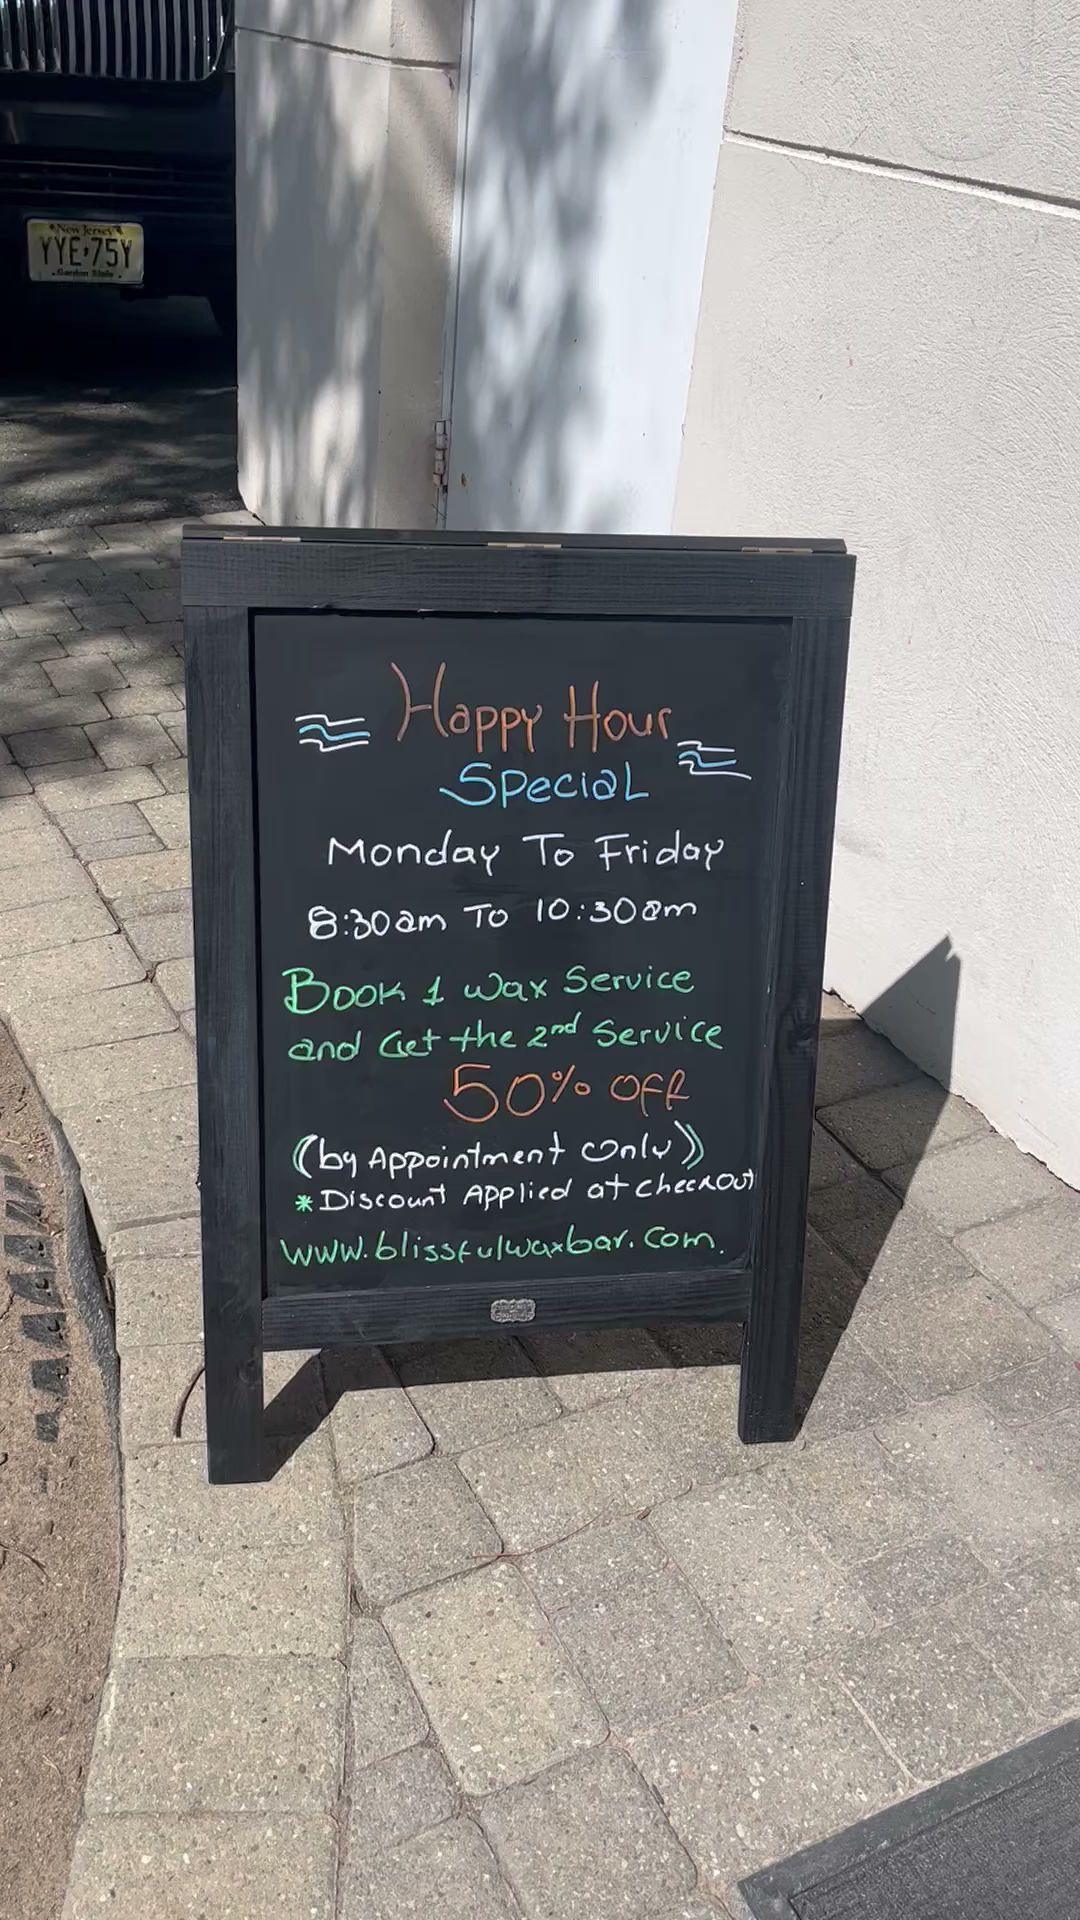 New Jersey
YYE 75Y
Garden State
Happy Hour
Special
Monday To Friday
8:30am To 10:30am
Book 1 Wax Service
and Get the 2nd Service
50% OFF
(by Appointment Only)
*Discount Applied at checkout
www.blissfulwaxbar.com.